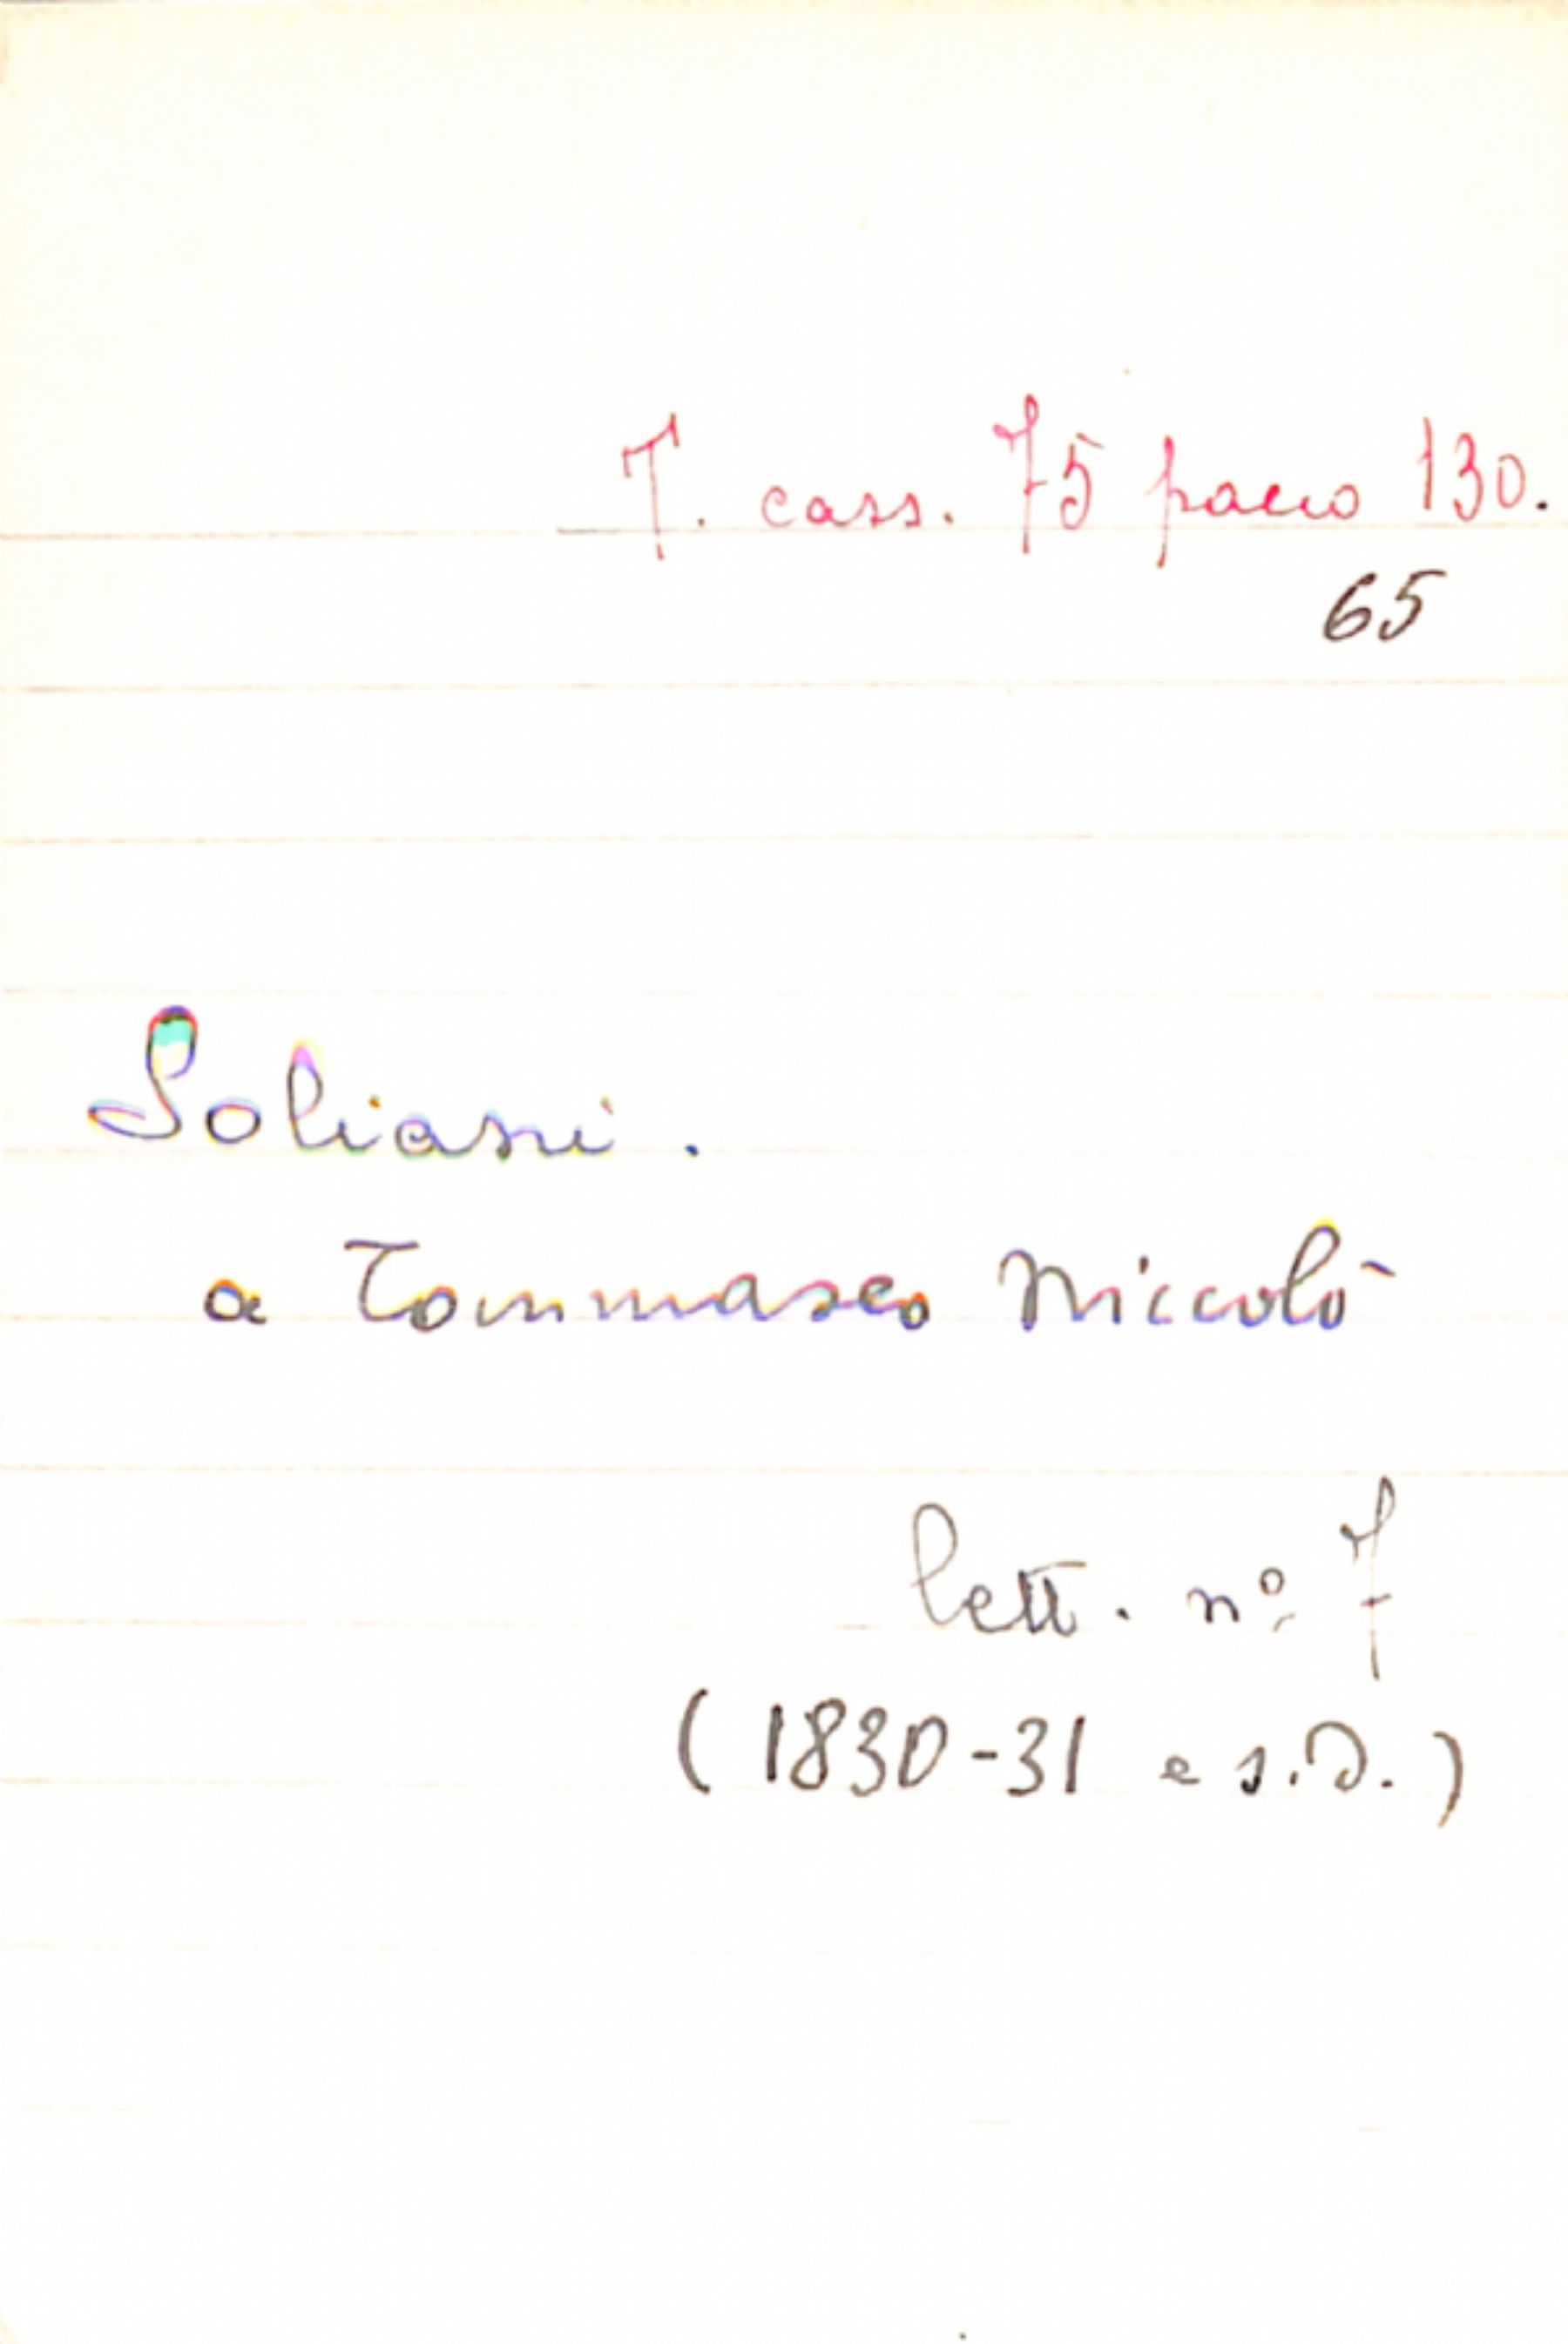 T. cass. 75 pacco 130.
65
Soliani.
a Tommaseo Niccolò
lett. nº 7
(1830-31 e s.d.)